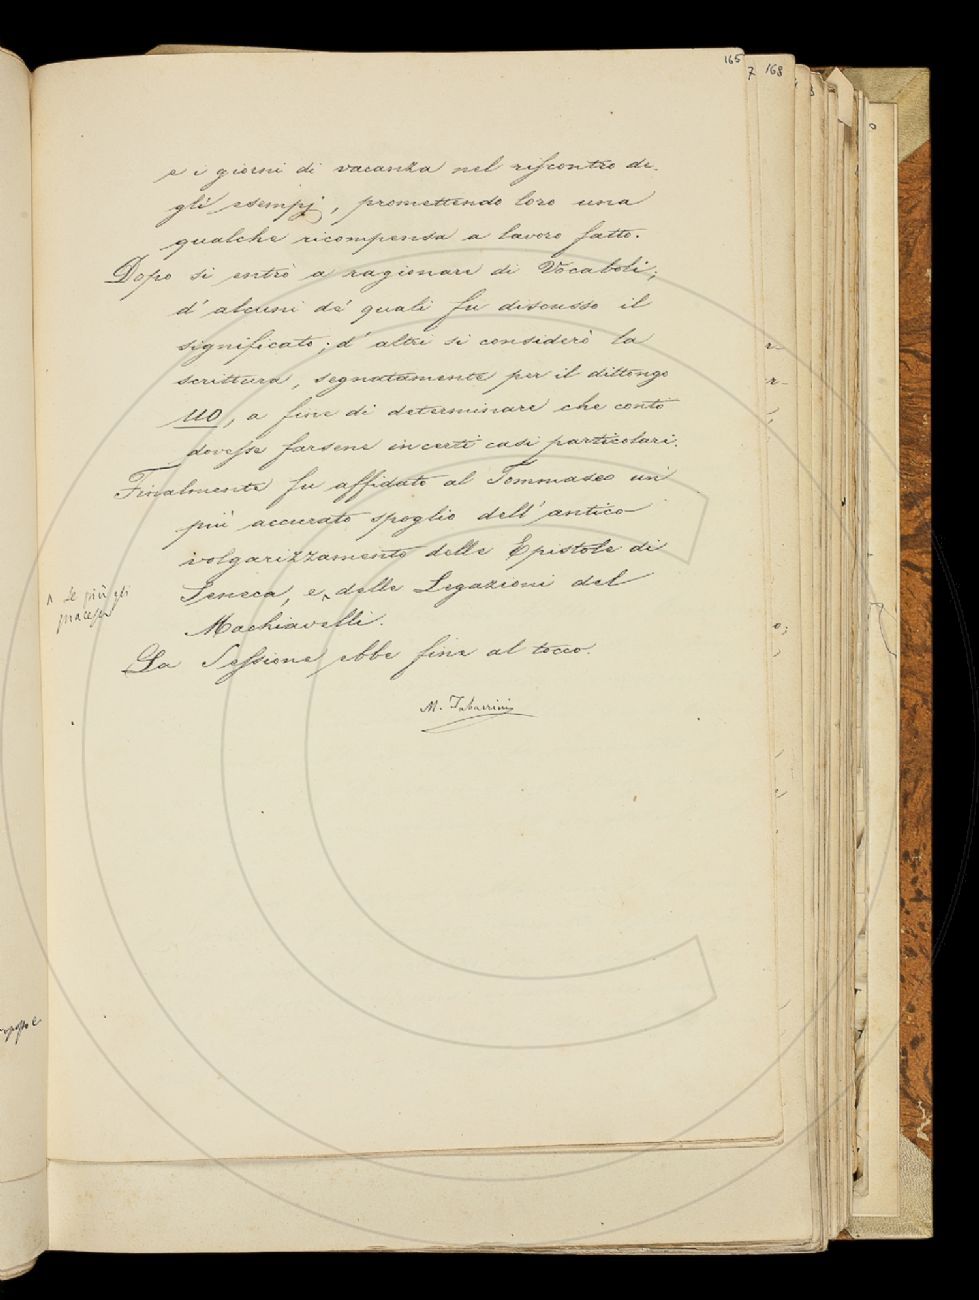 165
7 168
e i giorni di vacanza nel riscontro de-
gli esempj, promettendo loro una
qualche ricompensa a lavoro fatto.
Dopo si entrò a ragionare di Vocaboli;
d'alcuni de' quali fu discusso il
significato; d'altri si considerò la
scrittura, segnatamente per il dittongo
uo, a fine di determinare che conto
dovesse farsene in certi casi particolari.
Finalmente fu affidato al Tommaseo un
più accurato spoglio dell'antico
volgarizzamento delle Epistole di
Seneca, e ^ delle Legazioni del
^ Se più gli
piacesse
Machiavelli.
La Sessione ebbe fine al tocco.
M. Tabarrini